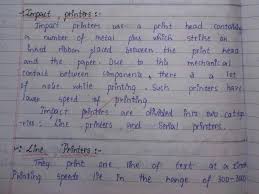 Impact printers :-
Impact printers use a print head containing
a number of metal pins which strike an
inked ribbon placed between the print head
and the paper. Due to this mechanical
contact between components, there is a lot
of noise while printing. Such printers have
lower speed of printing.
Impact printers are divided into two categ-
ries, Line printers and Serial printers.
Line Printers :-
They print one line of text at a time
Printing speeds lie in the range of 300-3000